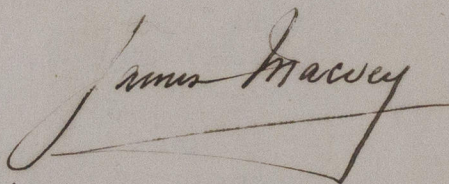 James Macvey